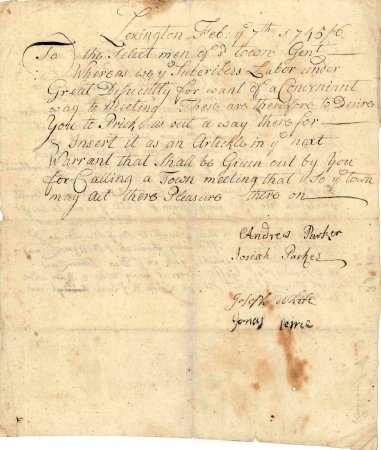 Lexington Feb. ye 7th 1745/6
To the Select men of sd town Gent
Whereas we ye Subscribers Labor under
Great Difucultly for want of a Conveniant
way to Meeting These are therefore to Desire
You to Prick us out a way there for
Insert it as an Article in ye next
Warrant that Shall be Given out by You
for Calling a Town meeting that So ye town
may Act there Pleasure there on
Andrew Parker
Josiah Parker
Joseph White
Jonas peirce